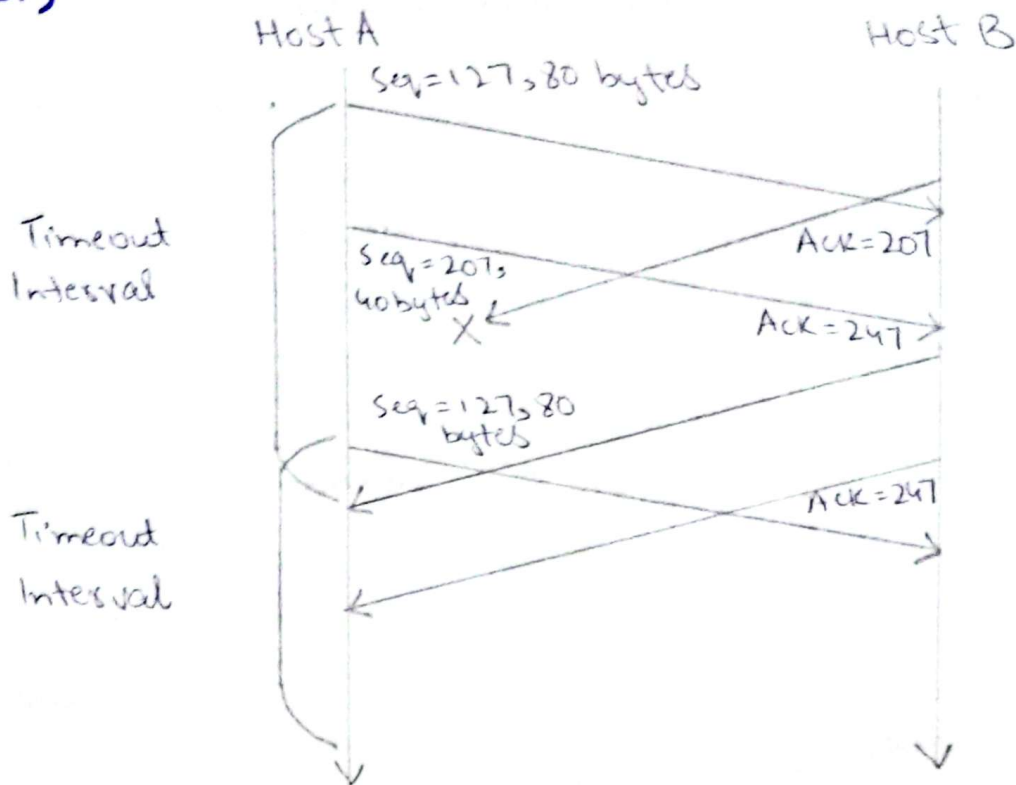 Host A
Host B
Seq=127,80 bytes
Timeout
Interval
Ack=207
Seq=207,
40bytes
X
Ack=247
Seq=127,80
bytes
Ack=247
Timeout
Interval